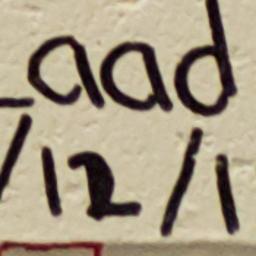 _aad
/12/1